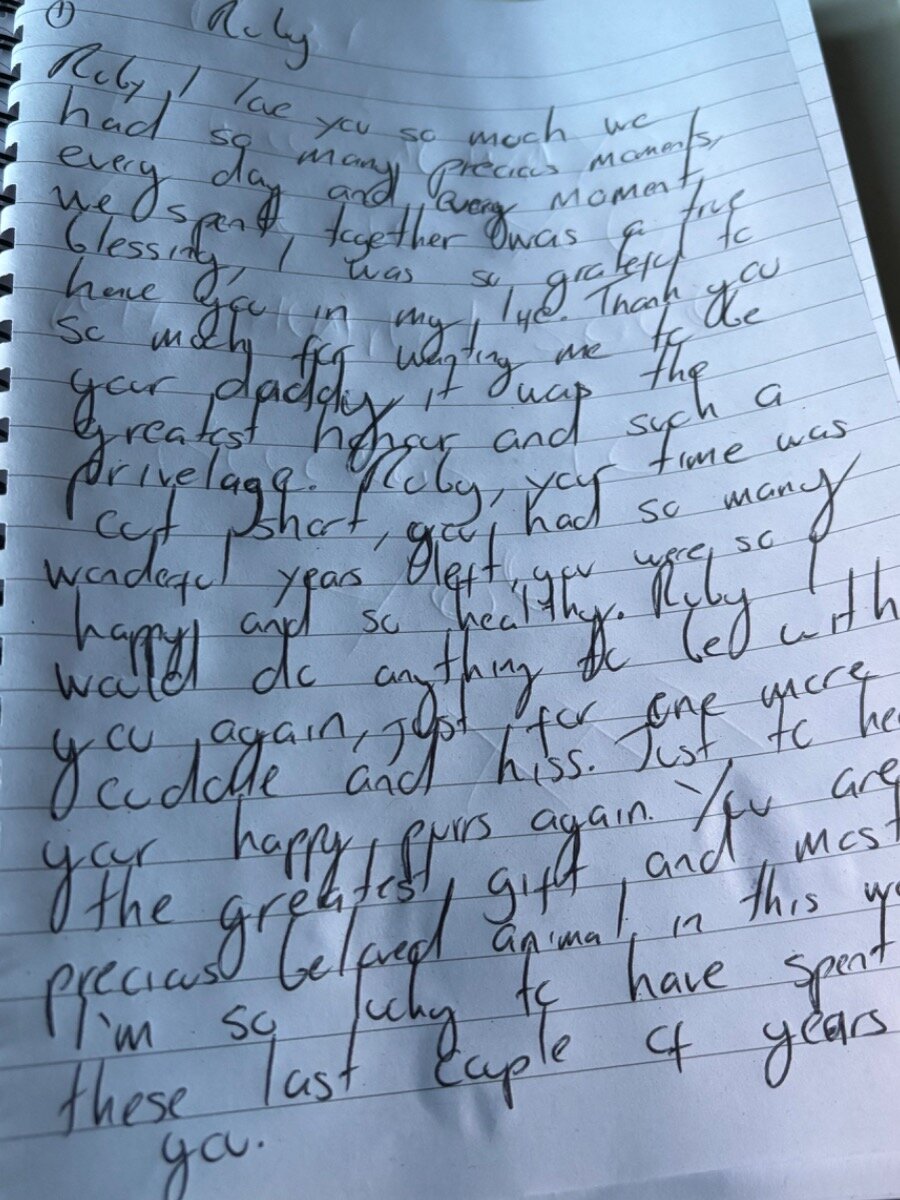 ① Ruby
Ruby I love you so much we
had so many precious moments,
every day and every moment
we spent together was a true
blessing, I was so grateful to
have you in my life. Thank you
so much for wanting me to be
your daddy, it was the
greatest honour and such a
privelage. Ruby, your time was
cut short, you had so many
wonderful years left, you were so
happy and so healthy. Ruby I
would do anything to be with
you again, just for one more
cuddle and kiss. Just to hea
your happy purrs again. You are
the greatest gift and most
precious beloved animal in this wo
I'm so lucky to have spent
these last couple of years
you.